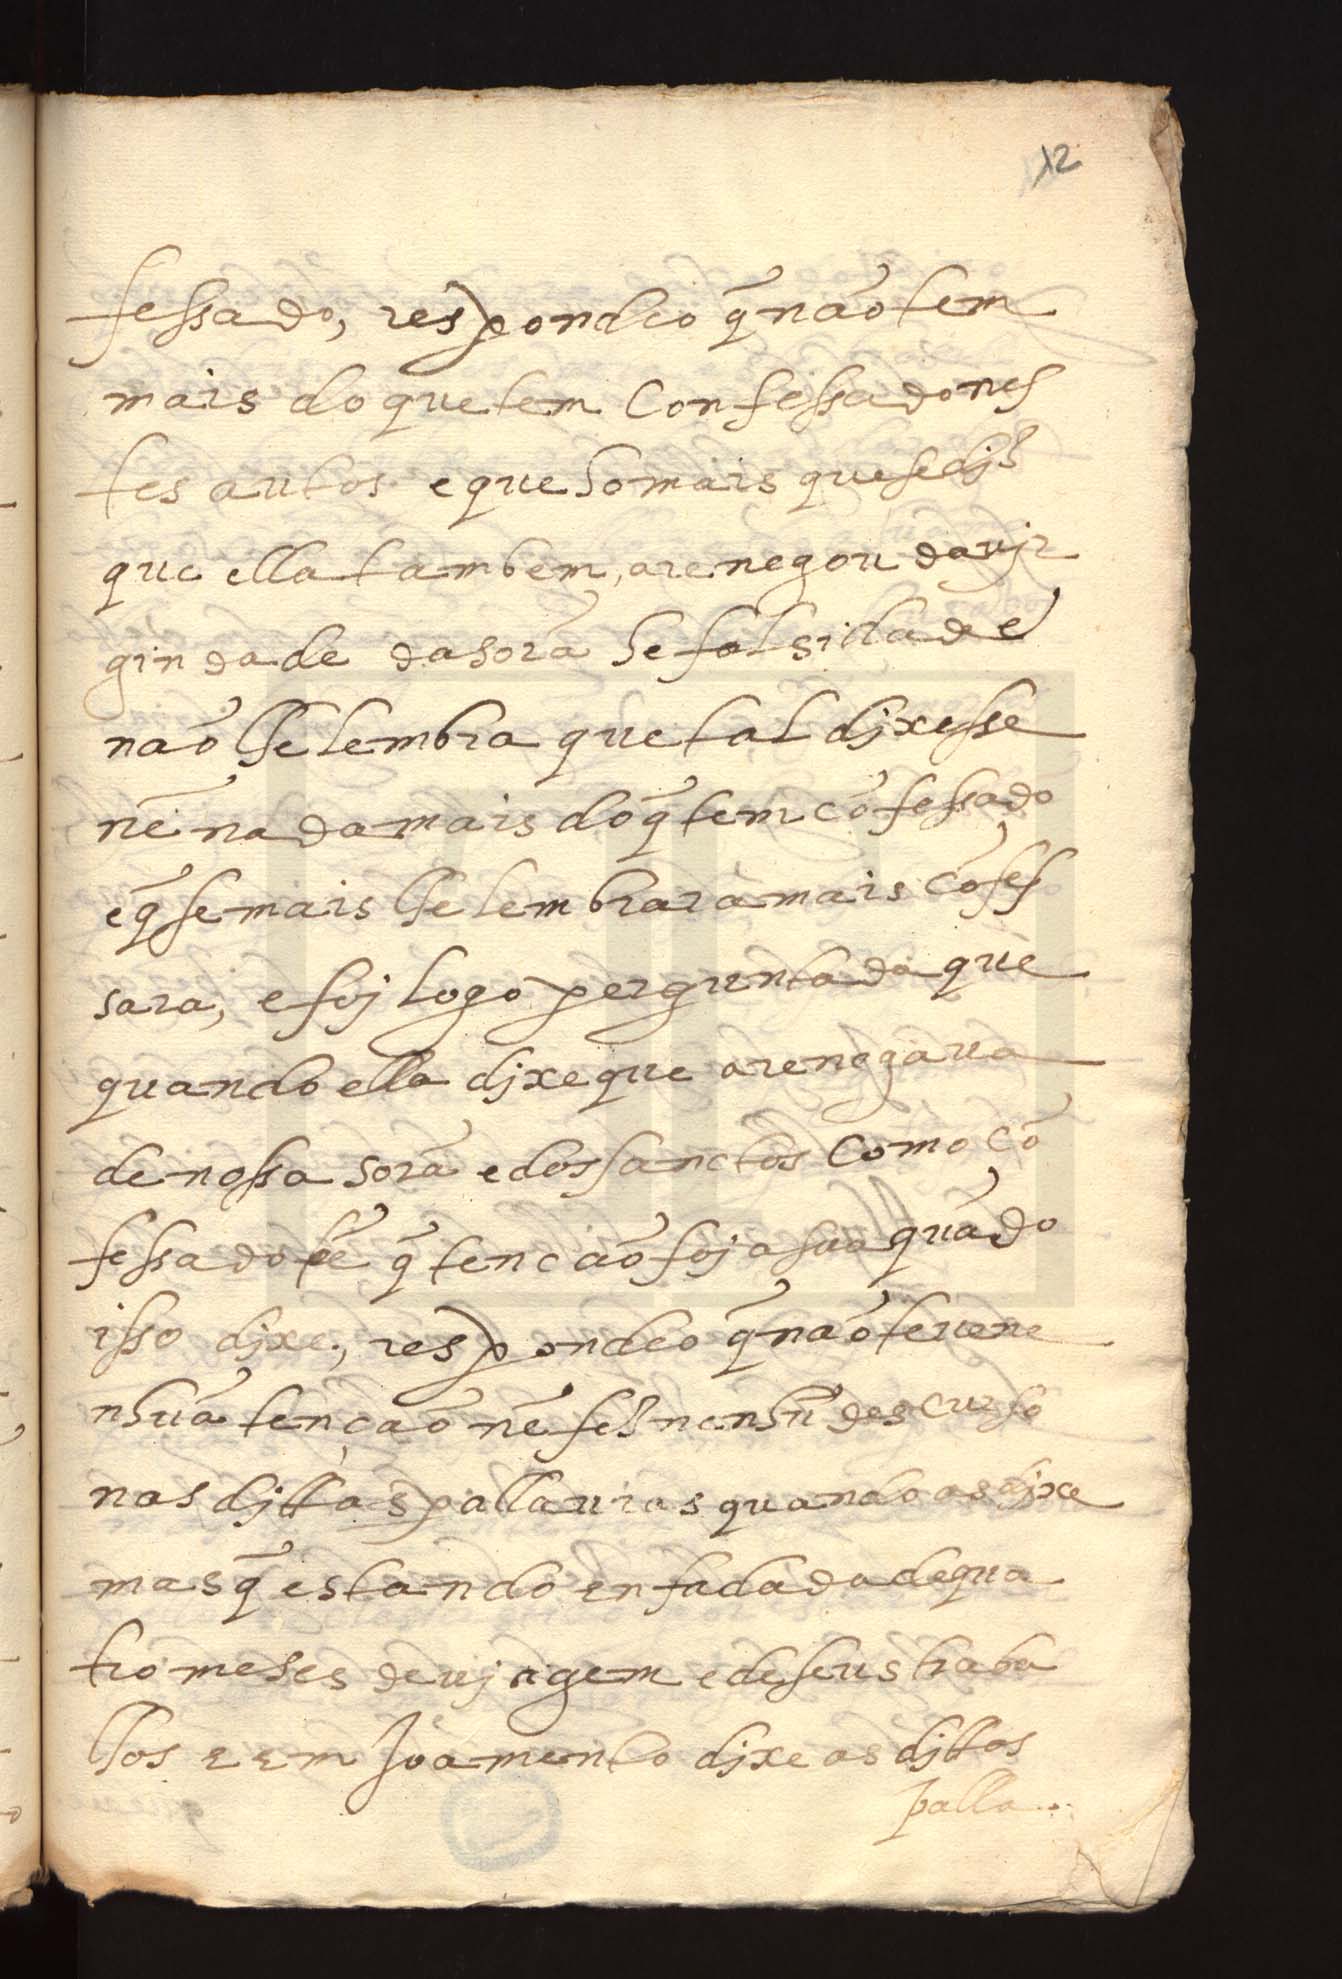 12
fessado, respondeo q̃ não tem
mais do que tem Confessado nes
tes autos e que ho mais que se djs
que ella tambem, arenegou da vjr
gindade da sorã he falsidade
não lhe lembra que tal djxesse
nẽ nada mais do q̃ tem cõfessado
e q̃ se mais lhe lembrara mais cõfes
sara, e foj logo perguntada que
quando ella djxe que arenegava
de nossa sorã e dos sanctos Como cõ
fessado tẽ q̃ tencão foj a sua quãdo
isso djxe, respondeo q̃ não teve ne
nhũa tenção nẽ fes nenhũ descurso
nas djttas pallavras quando as djxe
mas q̃ estando enfadada de qua
tro meses de vjagem e de seus traba
lhos e em joamento djxe as djttas
palla